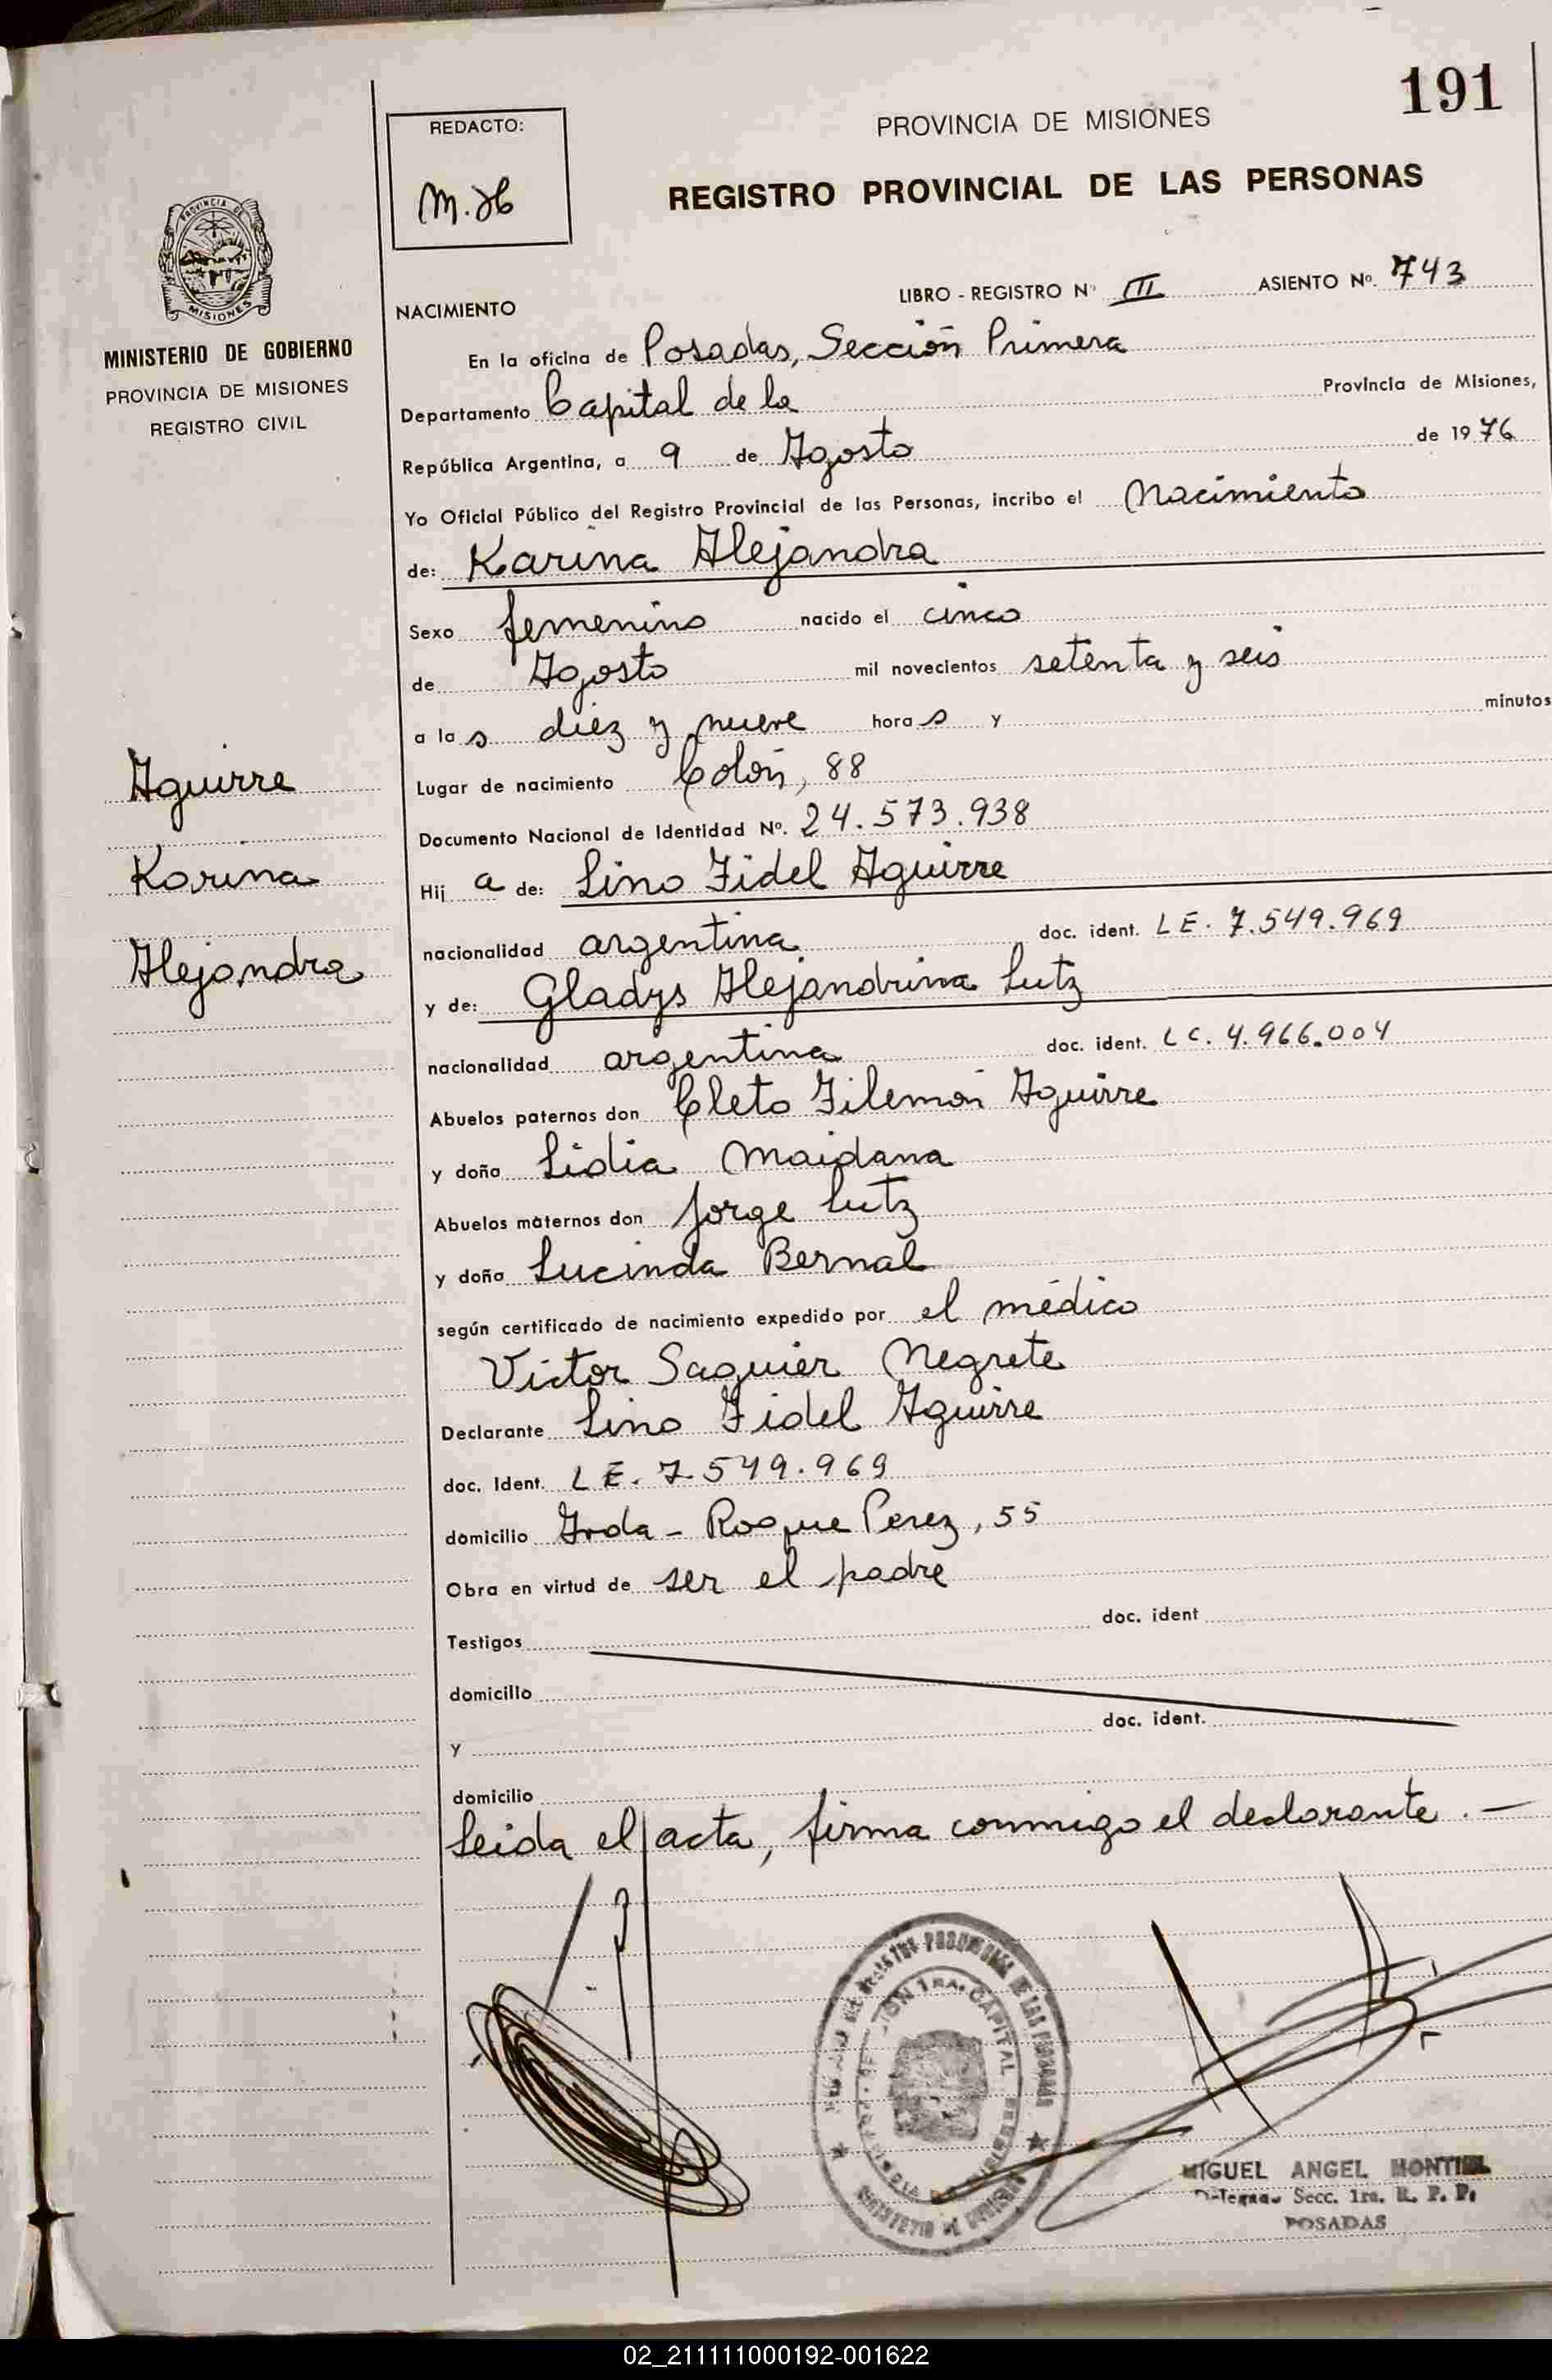 191
REDACTO:
M.H
PROVINCIA DE MISIONES
REGISTRO PROVINCIAL DE LAS PERSONAS
PROVINCIA DE
MISIONES
MINISTERIO DE GOBIERNO
PROVINCIA DE MISIONES
REGISTRO CIVIL
NACIMIENTO LIBRO - REGISTRO Nº III ASIENTO Nº. 743
En la oficina de Posadas, Sección Primera
Departamento Capital de la Provincia de Misiones,
República Argentina, a 9 de Agosto de 1976
Yo Oficial Público del Registro Provincial de las Personas, incribo el Nacimiento
de: Karina Alejandra
Sexo femenino nacido el cinco
de Agosto mil novecientos setenta y seis
a las diez y nueve horas y minutos
Lugar de nacimiento Colón, 88
Documento Nacional de Identidad Nº. 24.573.938
Hija de: Lino Fidel Aguirre
nacionalidad argentina doc. ident. LE. 7.549.969
y de: Gladys Alejandrina Lutz
nacionalidad argentina doc. ident. LC. 4.966.004
Abuelos paternos don Cleto Filemón Aguirre
y doña Lidia Maidana
Abuelos maternos don Jorge Lutz
y doña Lucinda Bernal
según certificado de nacimiento expedido por el médico
Victor Saguier Negrete
Declarante Lino Fidel Aguirre
doc. Ident. LE. 7.549.969
domicilio Avda - Roque Perez, 55
Obra en virtud de ser el padre
Testigos doc. ident
domicilio
y doc. ident.
domicilio
Leida el acta, firma conmigo el declarante. —
Aguirre
Karina
Alejandra
1RA. CAPITAL
MINISTERIO DE GOBIERNO
MIGUEL ANGEL MONTIEL
Delegado Secc. 1ra. R. P. P.
POSADAS
02_211111000192-001622